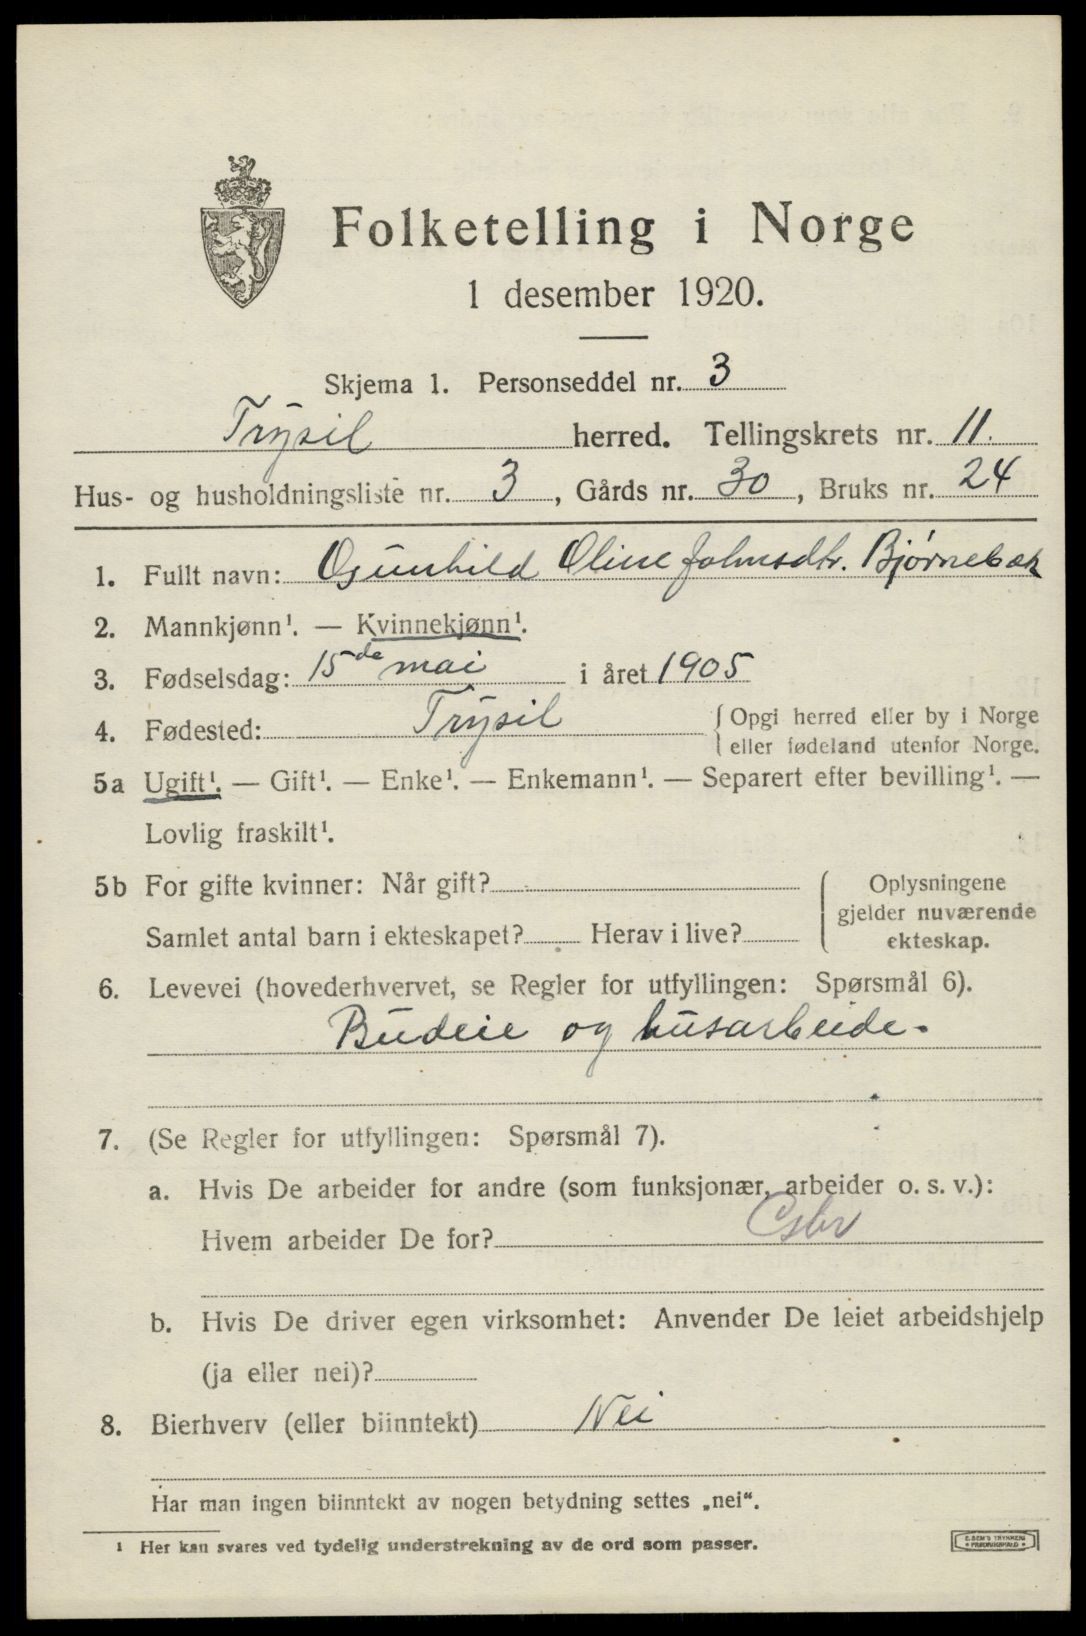 Folketelling i Norge
1 desember 1920.
Skjema 1. Personseddel nr. 3
Trysil herred. Tellingskrets nr. 11.
Hus- og husholdningsliste nr. 3, Gårds nr. 30, Bruks nr. 24
1. Fullt navn: Gunhild Oline Johnsdtr. Bjørnebæk
2. Mannkjønn¹. — Kvinnekjønn¹.
3. Fødselsdag: 15de mai i året 1905
4. Fødested: Trysil { Opgi herred eller by i Norge
eller fødeland utenfor Norge.
5a Ugift¹. — Gift¹. — Enke¹. — Enkemann¹. — Separert efter bevilling¹. —
Lovlig fraskilt¹.
5b For gifte kvinner: Når gift? { Oplysningene
gjelder nuværende
Samlet antal barn i ekteskapet? Herav i live? ekteskap.
6. Levevei (hovederhvervet, se Regler for utfyllingen: Spørsmål 6).
Budeie og husarbeide.
7. (Se Regler for utfyllingen: Spørsmål 7).
a. Hvis De arbeider for andre (som funksjonær, arbeider o. s. v.):
Hvem arbeider De for?
b. Hvis De driver egen virksomhet: Anvender De leiet arbeidshjelp
(ja eller nei)?
8. Bierhverv (eller biinntekt) Nei
Har man ingen biinntekt av nogen betydning settes „nei“.
¹ Her kan svares ved tydelig understrekning av de ord som passer.